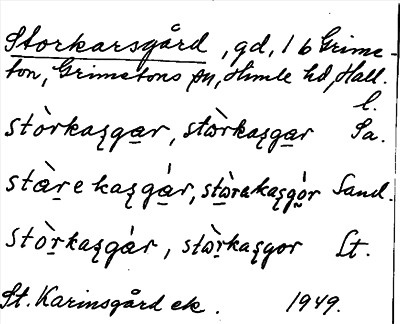 Storkarsgård, gd, 1 b Grime-
ton, Grimetons sn, Himle hd, Hall.
l.
stòrkaʂga̲r, stæ̀rkaʂga̲r Sa.
stæ̲̀re kaʂgá̲r, stæ̲̀rakaʂgó̤r Sand.
stò̲rkaʂgár, stæ̲̀rkaʂgor Lt.
St. Karinsgård ek. 1949.